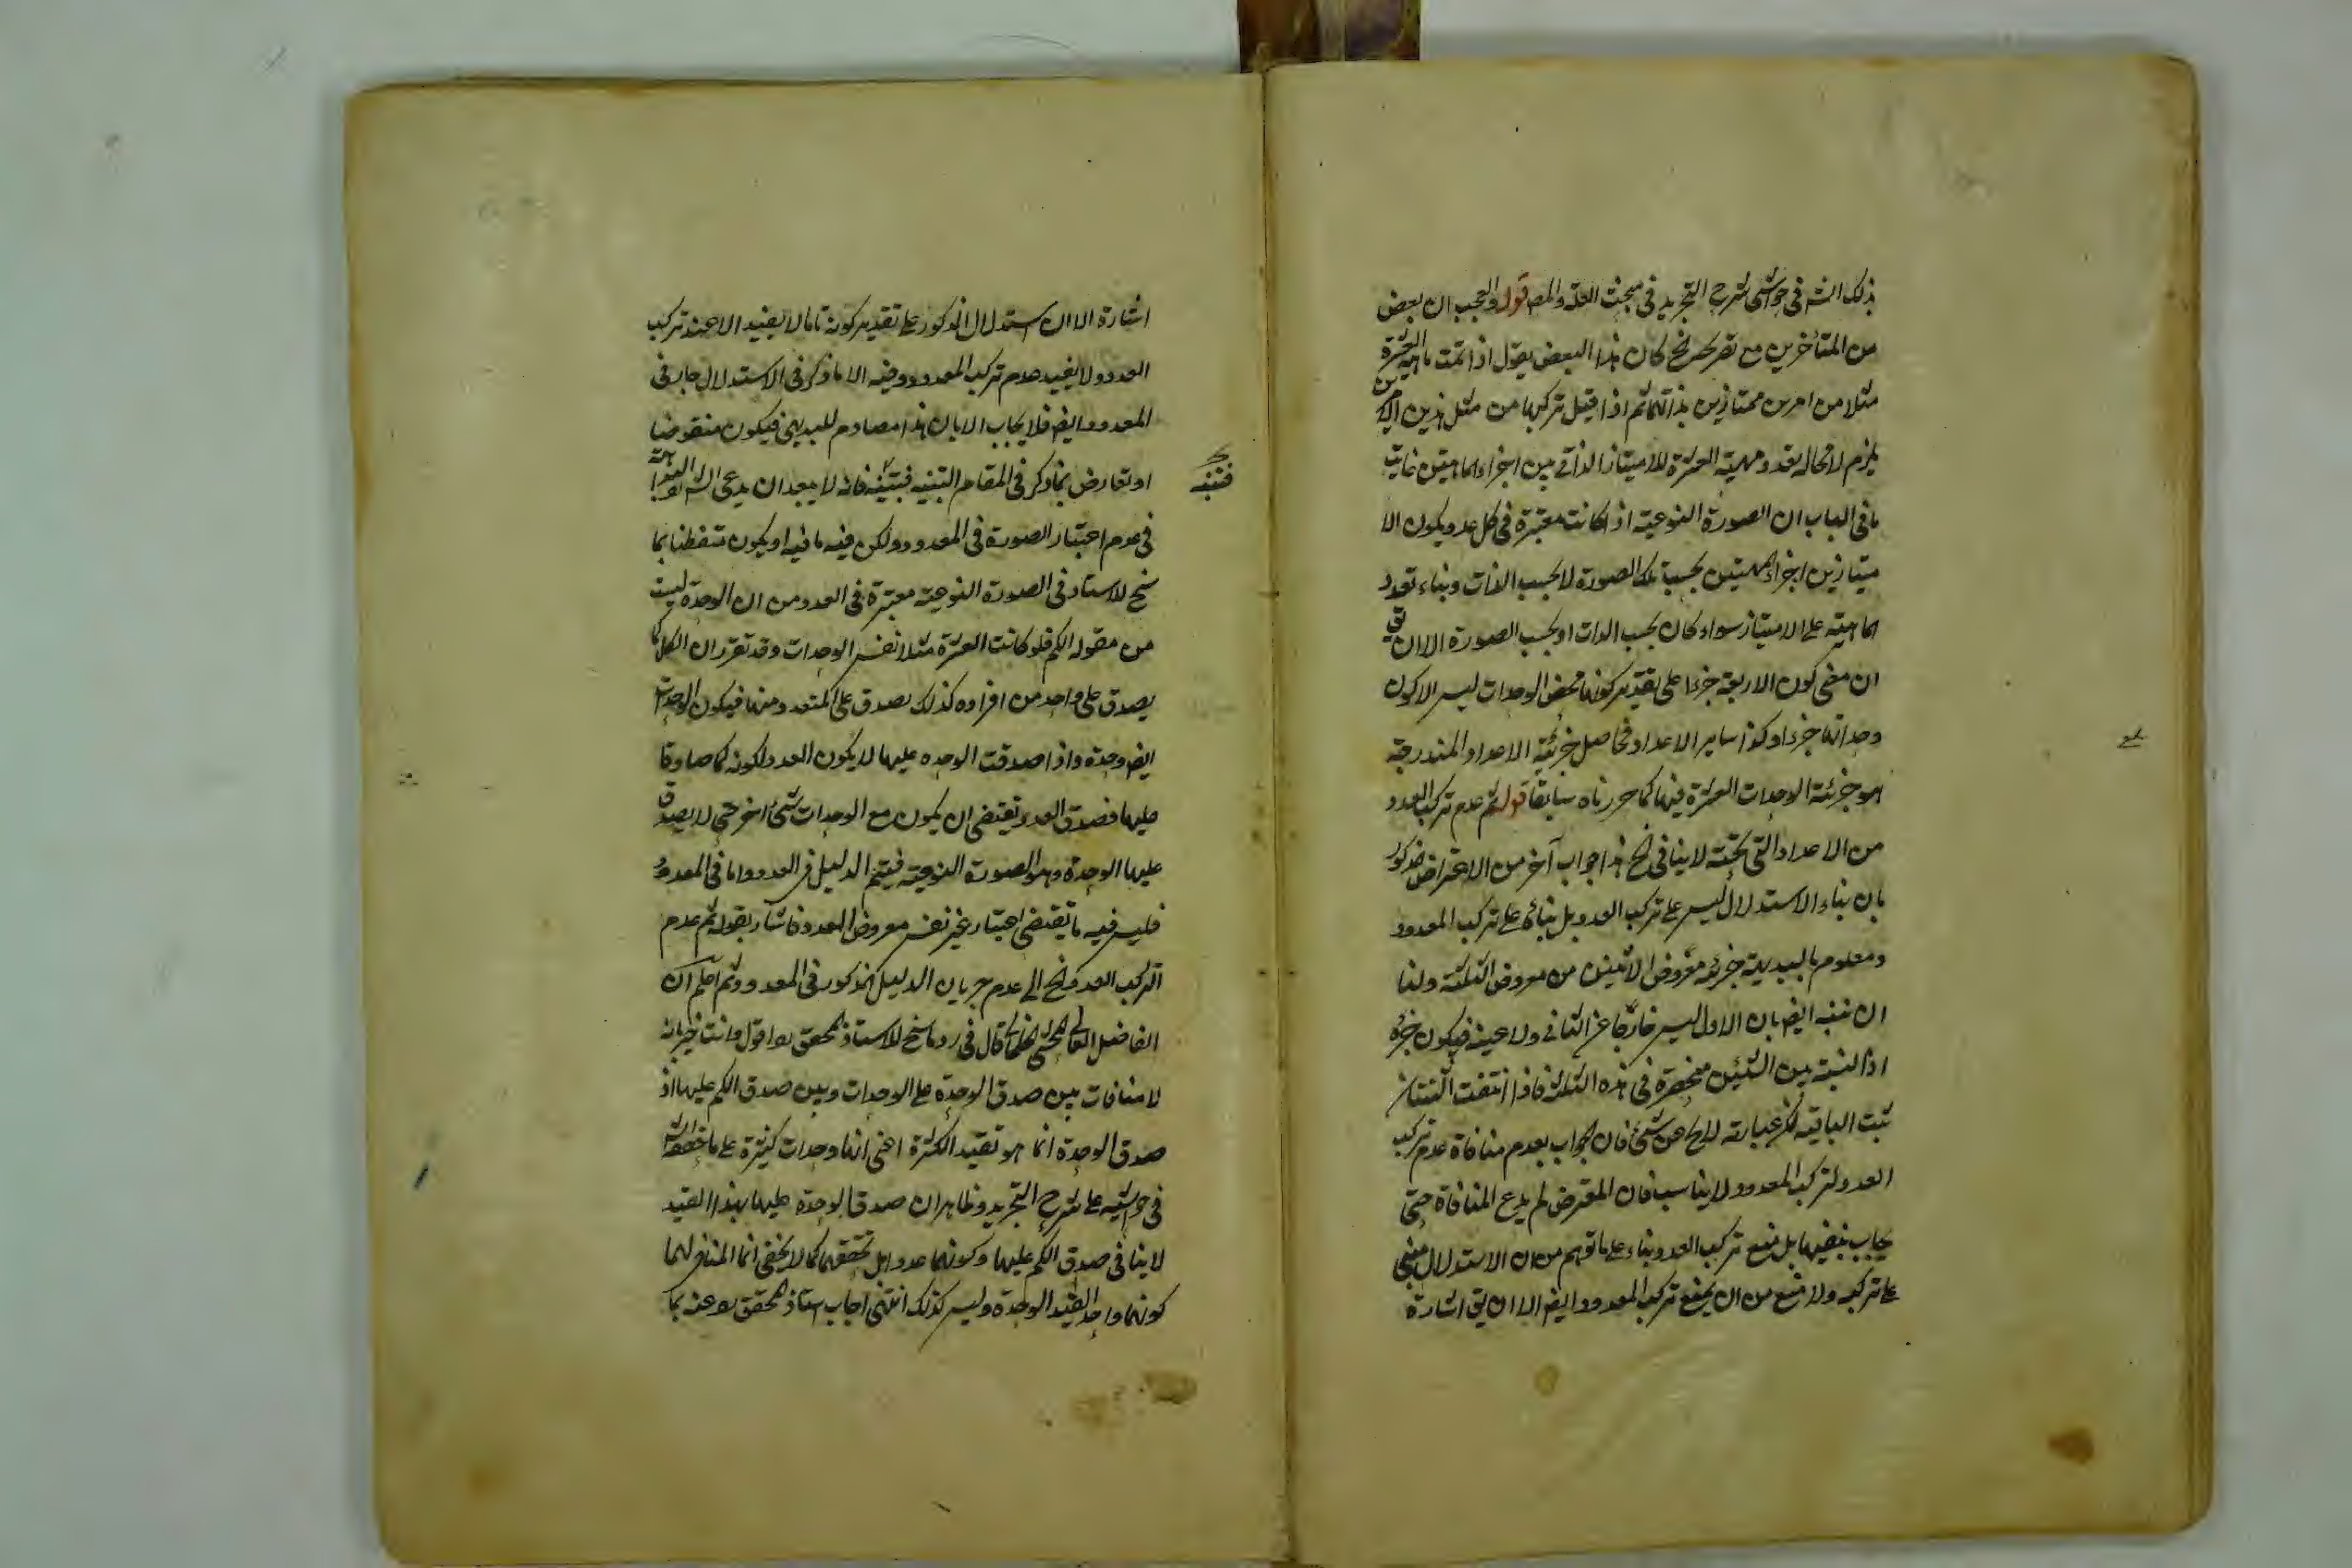 ذلك الشـ فى حواشى شرح التجريد فى مبحث العلة والمعـ قوله والعجب ان بعض
من المتأخرين مع تصريحه الخ كان هذا البعض يقول اذا تمت ماهية العشرة
مثلا من امرين ممتازين بذاتهما ثم اذا قيل تركبها من مثل هذين الامرين
يلزم لا محالة تعدد مهية العشرة للامتياز الذاتى بين اجزاء الماهيتين غايت
ما فى الباب ان الصورة النوعية اذا كانت معتبرة فى كل عدد يكون الا
متيازين اجزاء المهيتين بحسب تلك الصورة لا بحسب الذات وبناء تعدد
الماهية على الامتياز سواء كان بحسب الذات او بحسب الصورة الا ان يق
ان معنى كون الاربعة جزءا على تقدير كونها محض الوحدات ليس الا كون
وحداتها جزءا وكذا ساير الاعداد فحاصل جزئية الاعداد المندرجة
هو جزئية الوحدات العشرة فيها كما حررناه سابقا قوله ثم عدم تركب العدد
من الاعداد التى تحته لا ينافى الخ هذا جواب آخر من الاعتراض المذكور
بان بناء الاستدلال ليس على تركب العدد بل بناؤه على تركب المعدود
ومعلوم بالبديهة جزئية معروض الاثنين من معروض الثلثة ولنا
ان ننبه ايضا بان الاول ليس خارجا عن الثانى ولا عينه فيكون جزؤه
اذ النسبة بين الشيئين منحصرة فى هذه الثلثة فاذا انتفت الثنتان
ثبت الباقية لكن عبارته لا يخ عن شئ فان الجواب بعدم منافاة عدم تركب
العدد لتركب المعدود لا يناسب فان المعترض لم يدع المنافاة حتى
يجاب بنفيها بل منع تركب العدد بناء على ما توهم من ان الاستدلال مبنى
على تركبه ولا منع من ان يمنع تركب المعدود ايضا الا ان يق اشارة
اشارة الا ان استدلال المذكور على تقدير كونه تاما لا يفيد الا عند تركب
العدد ولا يفيد عدم تركب المعدود وفيه الا ما ذكر فى الاستدلال جاب فى
المعدود ايضا فلا يجاب الا بان هذا مصادم للبديهى فيكون منقوضا
او تعارض بما ذكر فى المقام التنبيه فبتنبيه فانه لا يبعد ان يدعى الشـ
فى عدم اعتبار الصورة فى المعدود ولكن فيه ما فيه او يكون متفطنا بما
سنح لاستاد فى الصورة النوعية معتبرة فى العدد من ان الوحدة ليست
من مقولة الكم فلو كانت العشرة مثلا نفس الوحدات وقد تقرر ان الكلى كما
يصدق على واحد من افراده كذلك يصدق على المتعدد منها فيكون الوحدات
ايضا وحدة واذا صدقت الوحده عليها لا يكون العدد لكونه كما صادقا
عليها فصدق العدد يقتضى ان يكون مع الوحدات شئ اخر حتى لا يصدق
عليها الوحدة وهو الصورة النوعية فيتم الدليل فى العدد واما فى المعدود
فليس فيه ما يقتضى اعتبار غير نفس معروض العدد فاشار بقوله ثم عدم
التركب العدد الخ الى عدم جريان الدليل المذكور فى المعدود ثم اعلم ان
الفاضل المحشى قال فى رد ما سنح للاستاذ المحقق ره اقول وانت خبير بانه
لا منافات بين صدق الوحدة على الوحدات وبين صدق الكم عليها اذ
صدق الوحدة انما هو تقيد الكثرة اعنى انها وحدات كثيرة على ما حققه الشـ
فى حواشيه على شرح التجريد وظاهر ان صدق الوحدة عليها بهذا القيد
لا ينافى صدق الكم عليها وكونها عددا بل تحققها كما لا يخفى انما المنافى لهما
كونها واحد القيد الوحدة وليس كذلك انتهى اجاب استاذ المحقق ره عنه بما